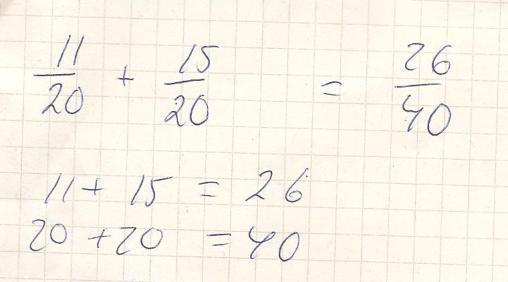 11/20 + 15/20 = 26/40
11 + 15 = 26
20 + 20 = 40